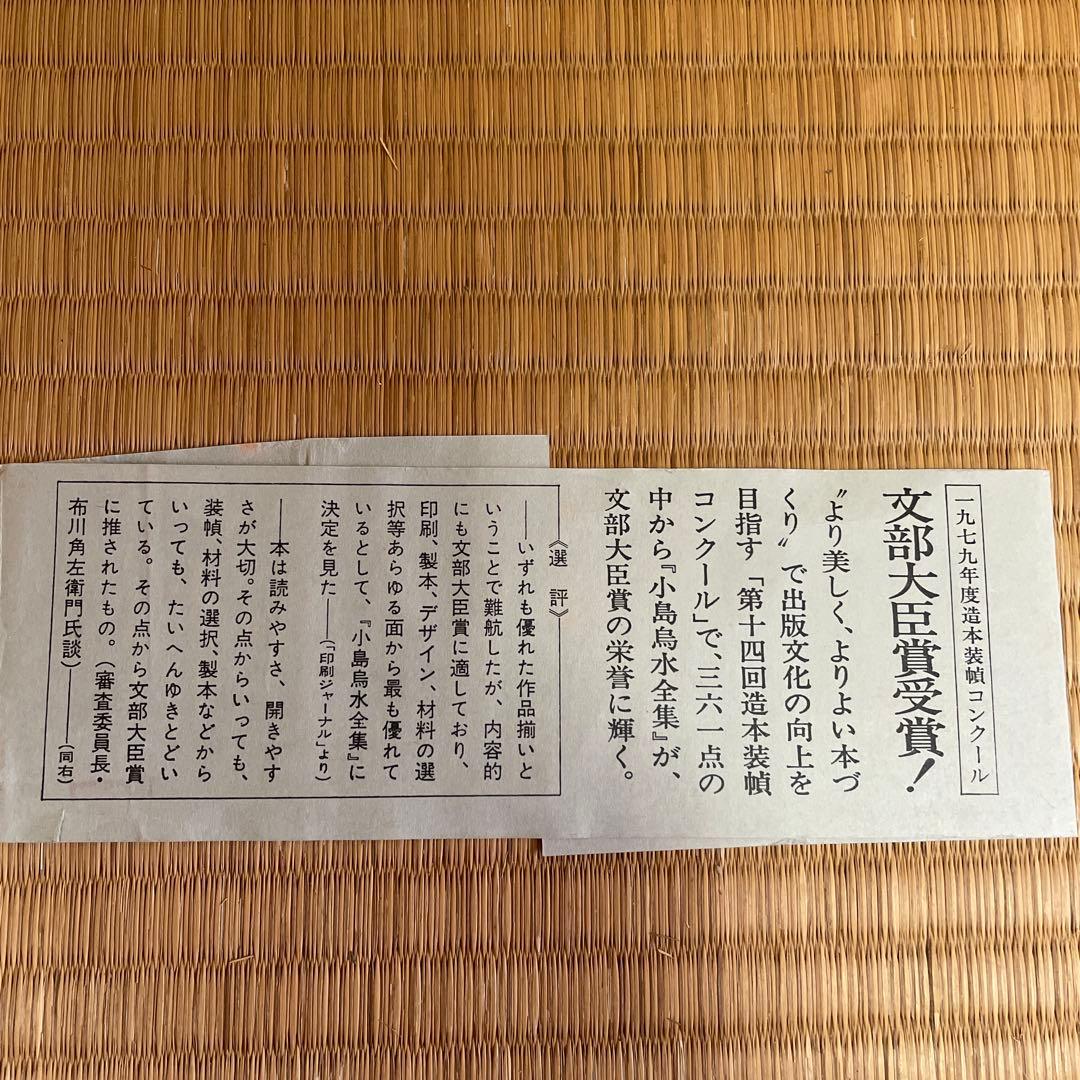 一九七九年度造本装幀コンクール
文部大臣賞受賞！
〝より美しく、よりよい本づ
くり〟で出版文化の向上を
目指す「第十四回造本装幀
コンクール」で、三六一点の
中から『小島烏水全集』が、
文部大臣賞の栄誉に輝く。
《選評》
――いずれも優れた作品揃いと
いうことで難航したが、内容的
にも文部大臣賞に適しており、
印刷、製本、デザイン、材料の選
択等あらゆる面から最も優れて
いるとして、『小島烏水全集』に
決定を見た――（「印刷ジャーナル」より）
――本は読みやすさ、開きやす
さが大切。その点からいっても、
装幀、材料の選択、製本などから
いっても、たいへんゆきとどい
ている。その点から文部大臣賞
に推されたもの。（審査委員長・
布川角左衛門氏談）――（同右）